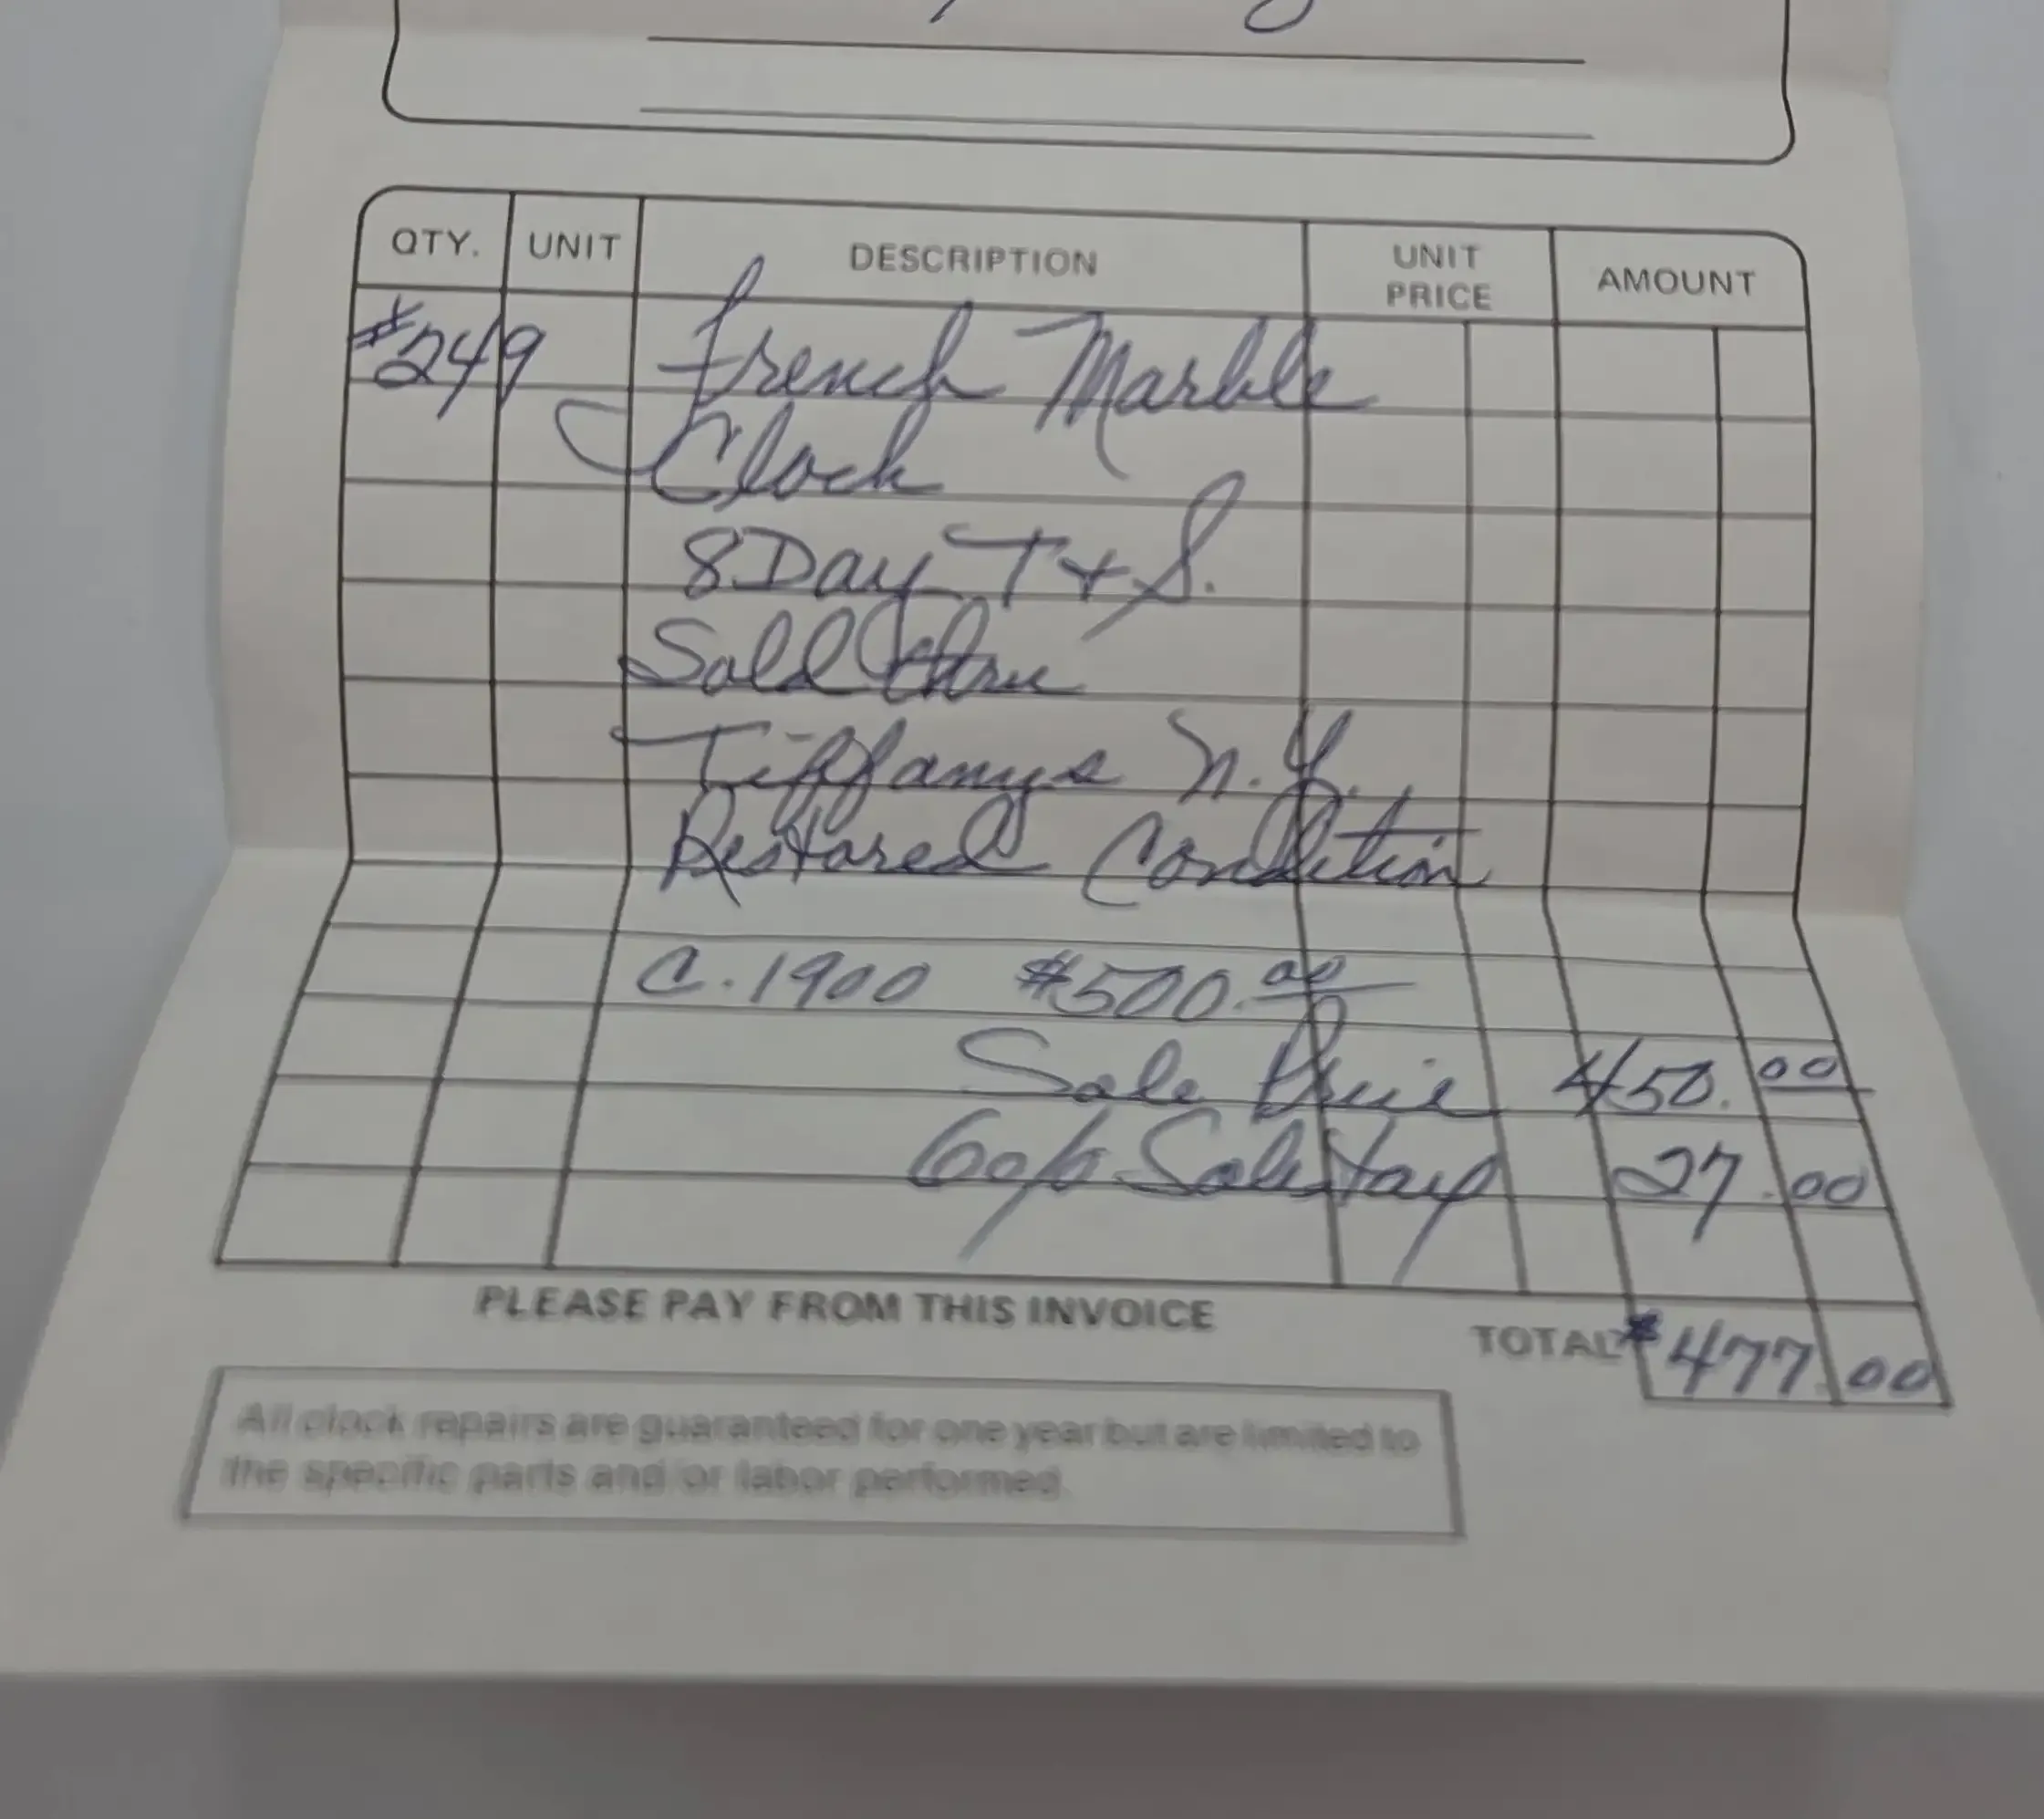 QTY. UNIT DESCRIPTION UNIT PRICE AMOUNT
#249 French Marble
Clock
8 Day T & S.
Sold thru
Tiffanys N.Y.
Restored Condition
C. 1900 $500.00
Sale Price 450.00
6% Sales Tax 27.00
PLEASE PAY FROM THIS INVOICE
TOTAL $477.00
All clock repairs are guaranteed for one year but are limited to
the specific parts and/or labor performed.